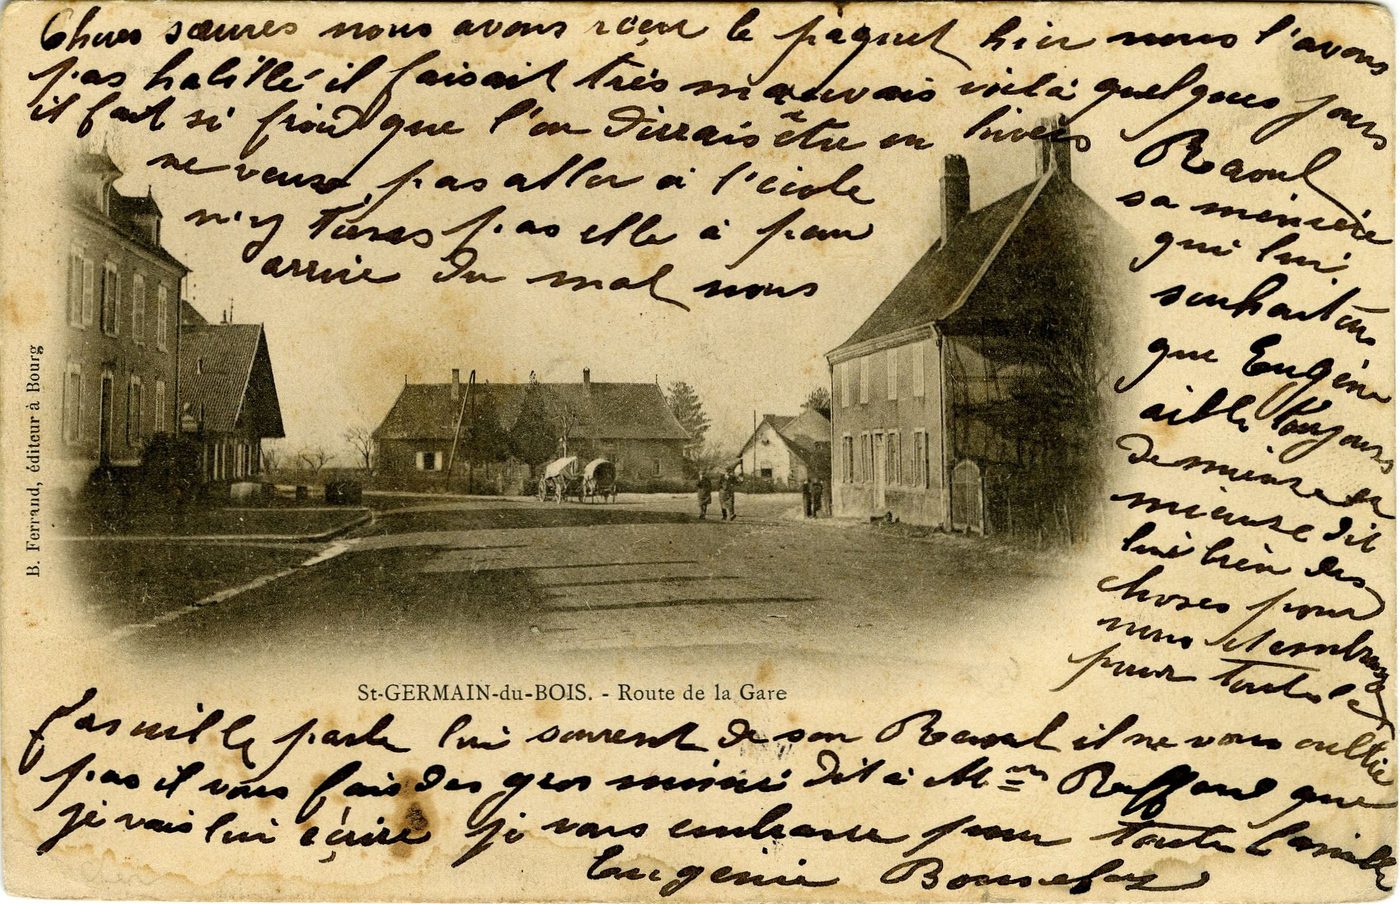 Cheres sœures nous avons reçu le paquet hier nous l'avons
pas habillé il faisait très mauvais voilà quelques jours
il fait si froid que l'on dirrais être en hivers
ne veux pas aller à l'école
n'y tières pas elle à peur
arrive du mal nous
Raoul
sa mémére
qui lui
souhaitons
que Eugène
aille toujours
de mieux en
mieux dit
lui bien des
choses pour
nous et embrasse
pour toute la
famille parle lui souvent de son Raoul il ne vous oublie
pas il vous fais des gros mimi dit à Mme Ruffaud que
je vais lui écrire je vous embrasse pour toute la famille
Eugénie
St-GERMAIN-du-BOIS. - Route de la Gare
B. Ferrand, éditeur à Bourg